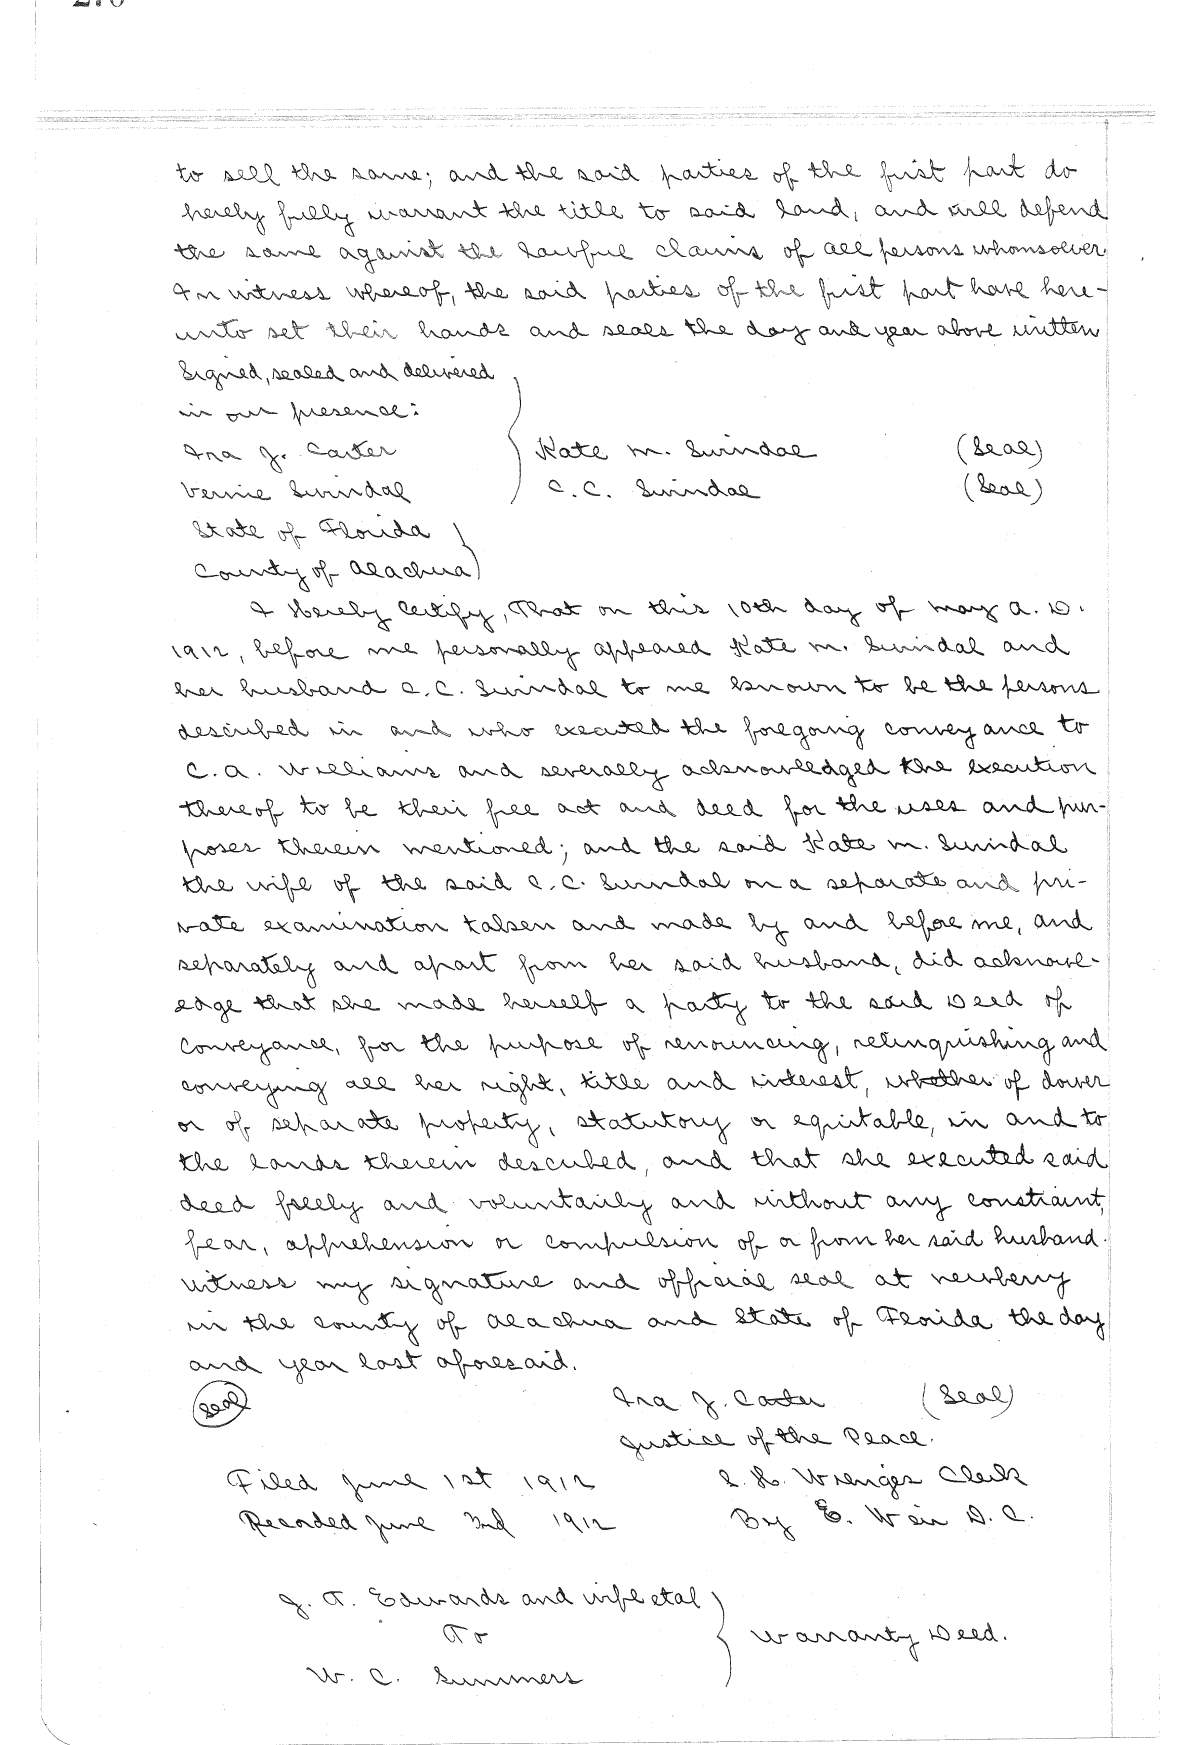 to sell the same; and the said parties of the first part do
hereby fully warrant the title to said land, and will defend
the same against the lawful claims of all persons whomsoever.
In witness whereof, the said parties of the first part have here-
unto set their hands and seals the day and year above written
Signed, sealed and delivered
in our presence:
Ira J. Carter Kate M. Swindal (Seal)
Vernie Swindal C. C. Swindal (Seal)
State of Florida
County of Alachua
I Hereby Certify, That on this 10th day of May A. D.
1912, before me personally appeared Kate M. Swindal and
her husband C. C. Swindal to me known to be the persons
described in and who executed the foregoing conveyance to
C. A. Williams and severally acknowledged the execution
thereof to be their free act and deed for the uses and pur-
poses therein mentioned; and the said Kate M. Swindal
the wife of the said C. C. Swindal on a separate and pri-
vate examination taken and made by and before me, and
separately and apart from her said husband, did acknowl-
edge that she made herself a party to the said Deed of
Conveyance, for the purpose of renouncing, relinquishing and
conveying all her right, title and interest, whether of dower
or of separate property, statutory or equitable, in and to
the lands therein described, and that she executed said
deed freely and voluntarily and without any constraint,
fear, apprehension or compulsion of or from her said husband.
Witness my signature and official seal at Newberry
in the county of Alachua and State of Florida the day
and year last aforesaid.
(Seal) Ira J. Carter (Seal)
Justice of the Peace.
Filed June 1st 1912 S. H. Wienges Clerk
Recorded June 3rd 1912 By E. Weir D. C.
J. T. Edwards and wife etal
To Warranty Deed.
W. C. Summers